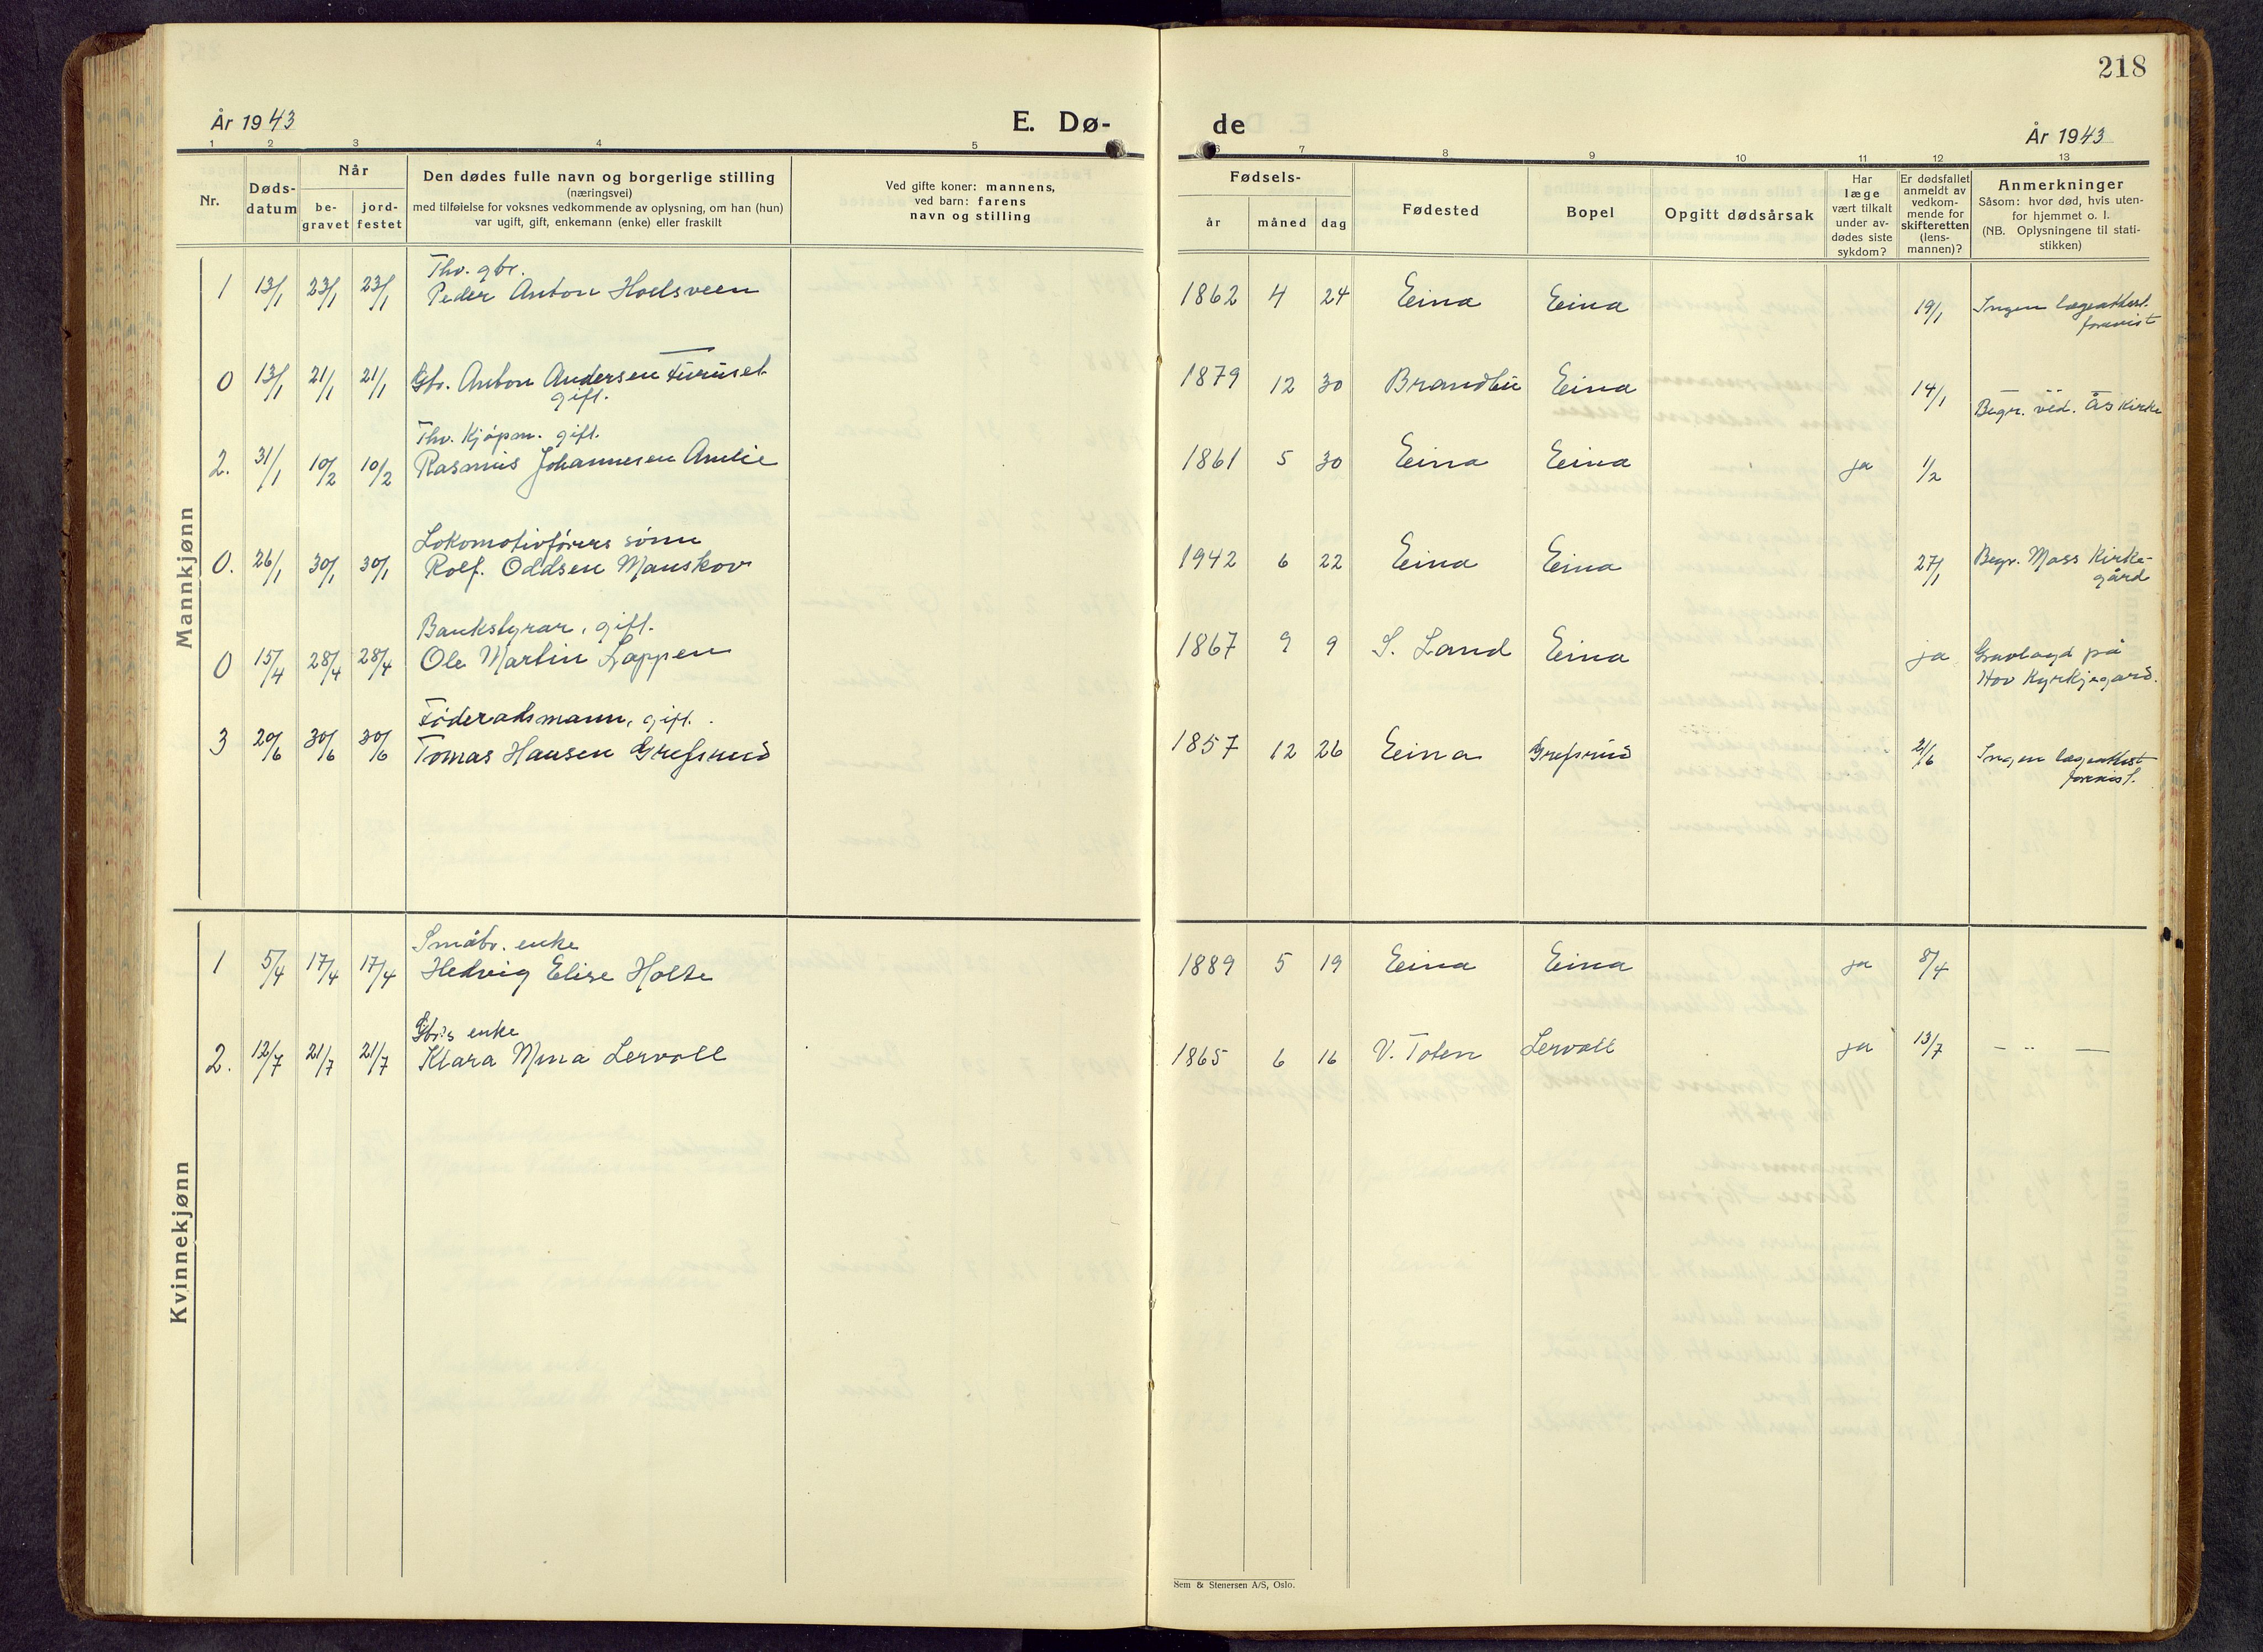 218
År 1943
E. Dø-
de
År 1943
1 2 3 4 5 6 7 8 9 10 11 12 13
Nr.
Døds-
datum
Når
be-
gravet
jord-
festet
Den dødes fulle navn og borgerlige stilling
(næringsvei)
med tilføielse for voksnes vedkommende av oplysning, om han (hun)
var ugift, gift, enkemann (enke) eller fraskilt
Ved gifte koner: mannens,
ved barn: farens
navn og stilling
Fødsels-
år måned dag
Fødested
Bopel
Opgitt dødsårsak
Har
læge
vært tilkalt
under av-
dødes siste
sykdom?
Er dødsfallet
anmeldt av
vedkom-
mende for
skifteretten
(lens-
mannen)?
Anmerkninger
Såsom: hvor død, hvis uten-
for hjemmet o. l.
(NB. Oplysningene til stati-
stikken)
Mannkjønn
Thv. gbr.
1 13/1 23/1 23/1 Peder Anton Hoelsveen 1862 4 24 Eina Eina 19/1 Ingen lægeattest
forevist
0 13/1 21/1 21/1 Gbr. Anton Andersen Furuset 1879 12 30 Brandbu Eina 14/1 Begr. ved. Ås Kirke
gift.
Thv. Kjøpm. gift.
2. 31/1 10/2 10/2 Rasmus Johannesen Amlie 1861 5 30 Eina Eina ja 1/2
Lokomotivførers sønn
0. 26/1 30/1 30/1 Rolf. Oddsen Manskov 1942 6 22 Eina Eina 27/1 Begr. Moss Kirke-
gård
Bankstyrar, gift.
0 15/4 28/4 28/4 Ole Martin Lappen 1867 9 9 S. Land Eina ja Gravlagd på
Hov Kyrkjegard.
Föderadsmann, gift.
3 20/6 30/6 30/6 Tomas Hansen Grefsrud 1857 12 26 Eina Grefsrud 21/6 Ingen lægeattest
forevist.
Kvinnekjønn
Småbr. enke
1 5/4 17/4 17/4 Hedvig Elise Holte 1889 5 19 Eina Eina ja 8/4
Gbr's enke
2. 12/7 21/7 21/7 Klara Mina Lervoll 1865 6 16 V. Toten Lervoll ja 13/7 — " —
Sem & Stenersen A/S, Oslo.